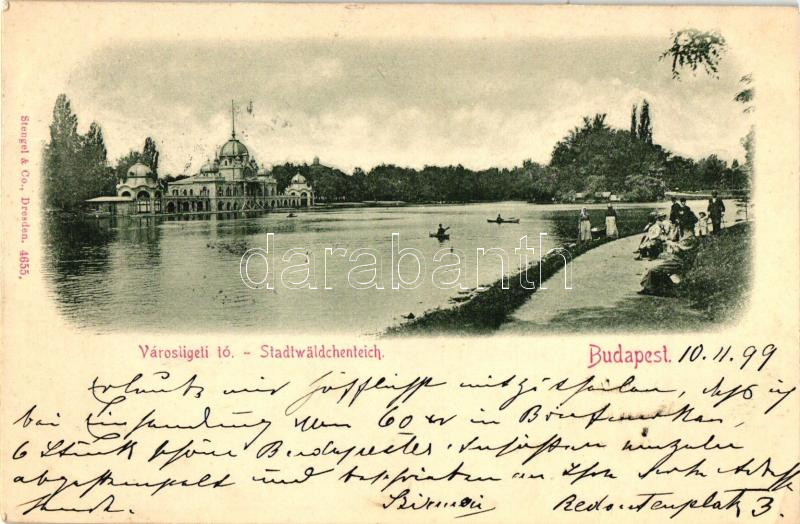 Stengel & Co., Dresden. 4655.
darabanth
Városligeti tó. - Stadtwäldchenteich.
Budapest. 10.11.99
Erlaubt mir höflichst mitzutheilen, dass ich
bei Einsendung von 60 xr in Briefmarken,
6 Stück schöne Budapester Ansichten
abgestempelt und beschrieben an
sende.
Redoutenplatz 3.